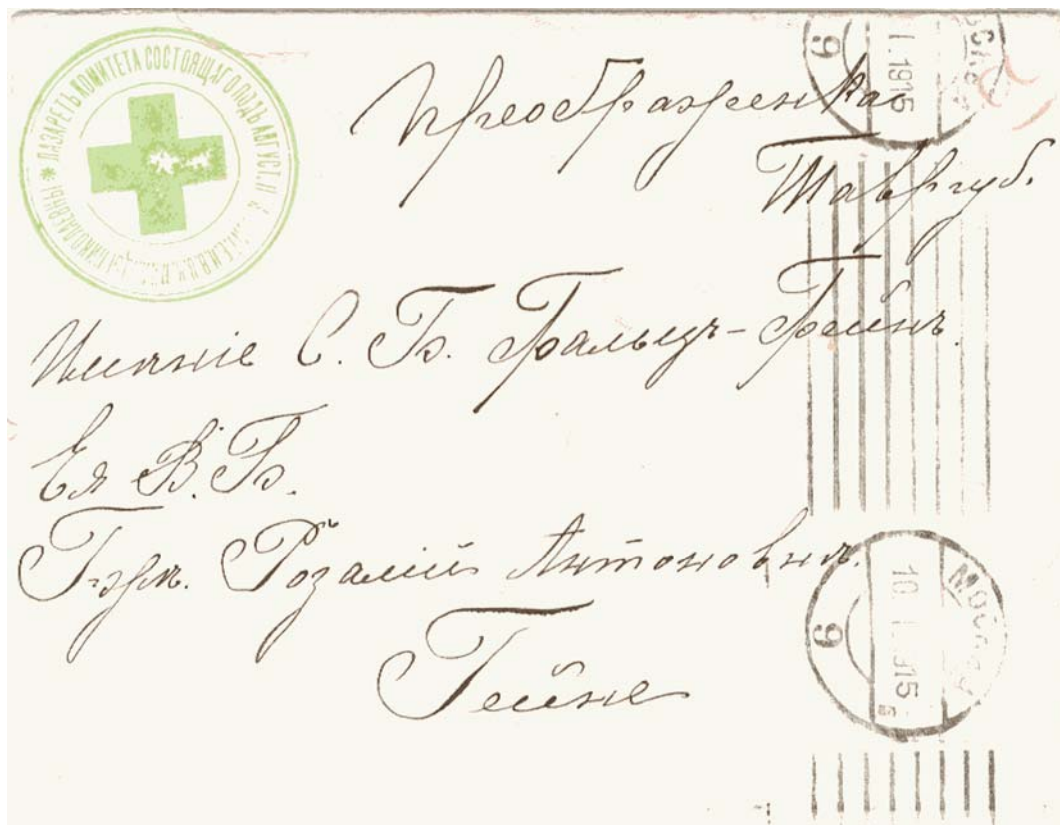 ЛАЗАРЕТЪ КОМИТЕТА СОСТОЯЩАГО ПОДЪ АВГУСТ. П НИКОЛАЕВНЫ *
Преображенка
Тавр губ.
Имѣніе С. Б. Фальцъ-Фейнъ.
Ея В. Б.
Гжѣ. Розаліи Антоновнѣ.
Гейне
9 I.1915
МОСКВА 10 I.1915 9